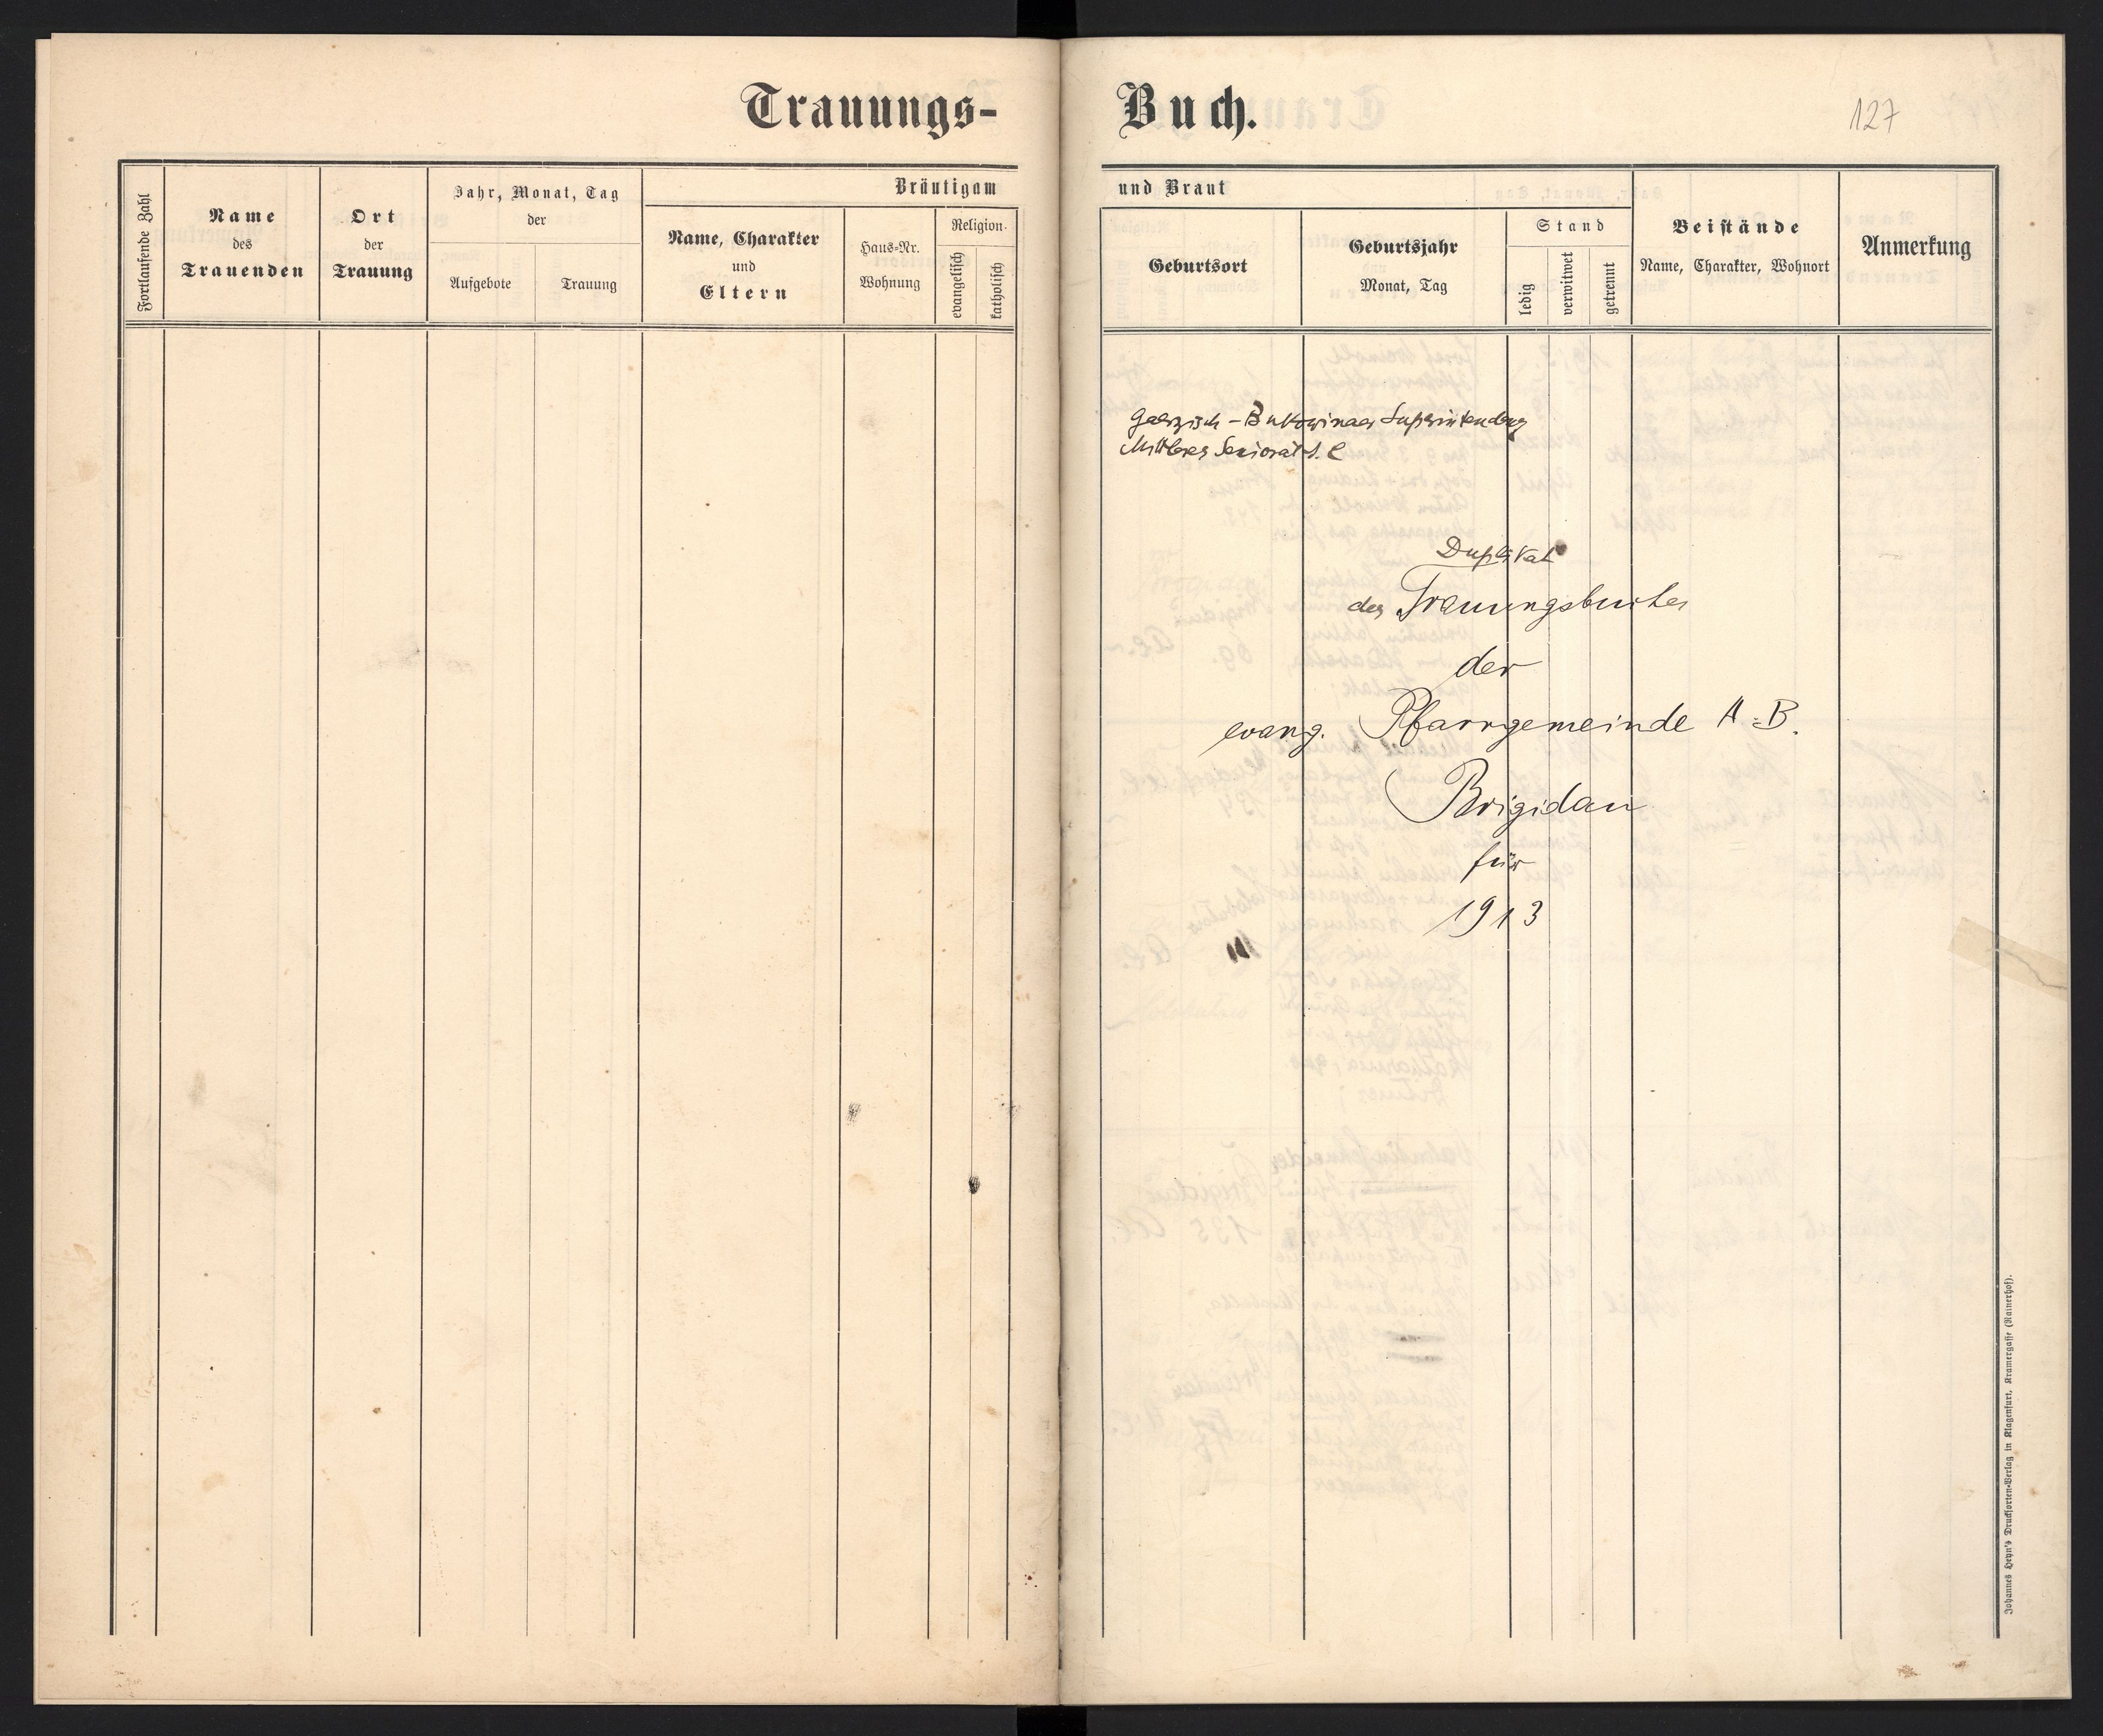 Trauungs-
Fortlaufende Zahl
Name
des
Trauenden
Ort
der
Trauung
Jahr, Monat, Tag
der
Aufgebote
Trauung
Bräutigam
Name, Charakter
und
Eltern
Haus-Nr.
Wohnung
Religion
evangelisch
katholisch
Buch.
127
und Braut
Geburtsort
Geburtsjahr
Monat, Tag
Stand
ledig
verwitwet
getrennt
Beistände
Name, Charakter, Wohnort
Anmerkung
Galizisch-Bukowinaer Superintendenz
Mittleres Seniorat
Duplikat
des Trauungsbuches
der
evang. Pfarrgemeinde A. B.
Brigidau
für
1913
Johannes Heyn's Drucksorten-Verlag in Klagenfurt, Kramergasse (Rainerhof).